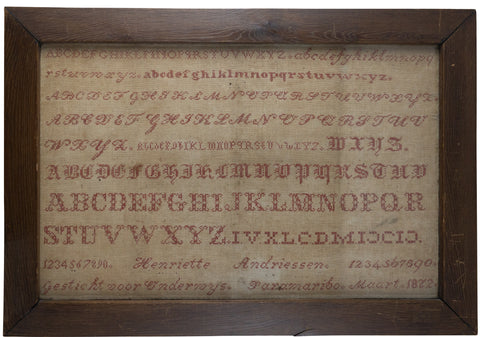 ABCDEFGHIJKLMNOPQRSTUVWXYZ. abcdefghiklmnopq
rstuvwxyz. abcdefghiklmnopqrstuvwxyz.
ABCDEFGHIKLMNOPQRSTUVWXYZ.
ABCDEFGHIKLMNOPQRSTUV
WXYZ. ABCDEFGHIKLMNOPQRSTUVWXYZ. WXYZ.
ABCDEFGHIKLMNOPQRSTUV
ABCDEFGHIJKLMNOPQR
STUVWXYZ. IVXLCDMIƆCIƆ.
1234567890. Henriette Andriessen. 1234567890.
Gesticht voor Onderwijs. Paramaribo. Maart. 1872